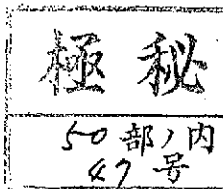 極秘
50部ノ内
47号